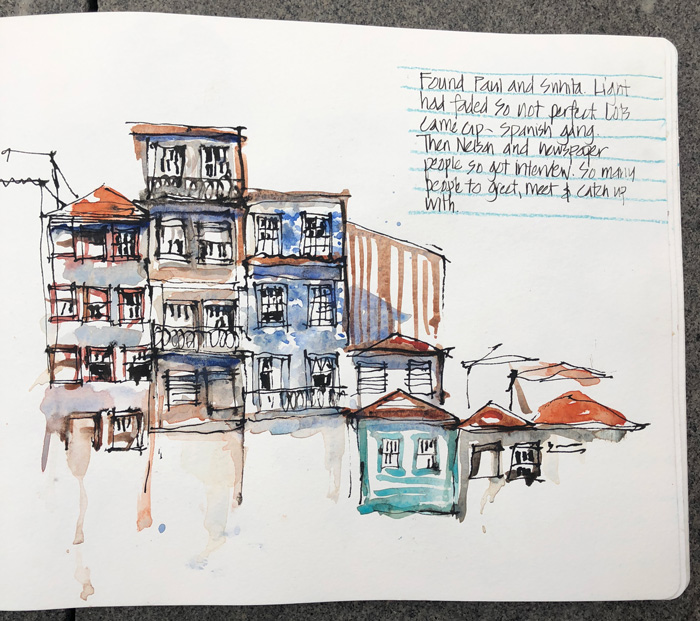 Found Paul and Suhita. Light
had faded so not perfect. Lots
came up - Spanish gang.
Then Nelson and newspaper
people so got interview. So many
people to greet, meet & catch up
with.